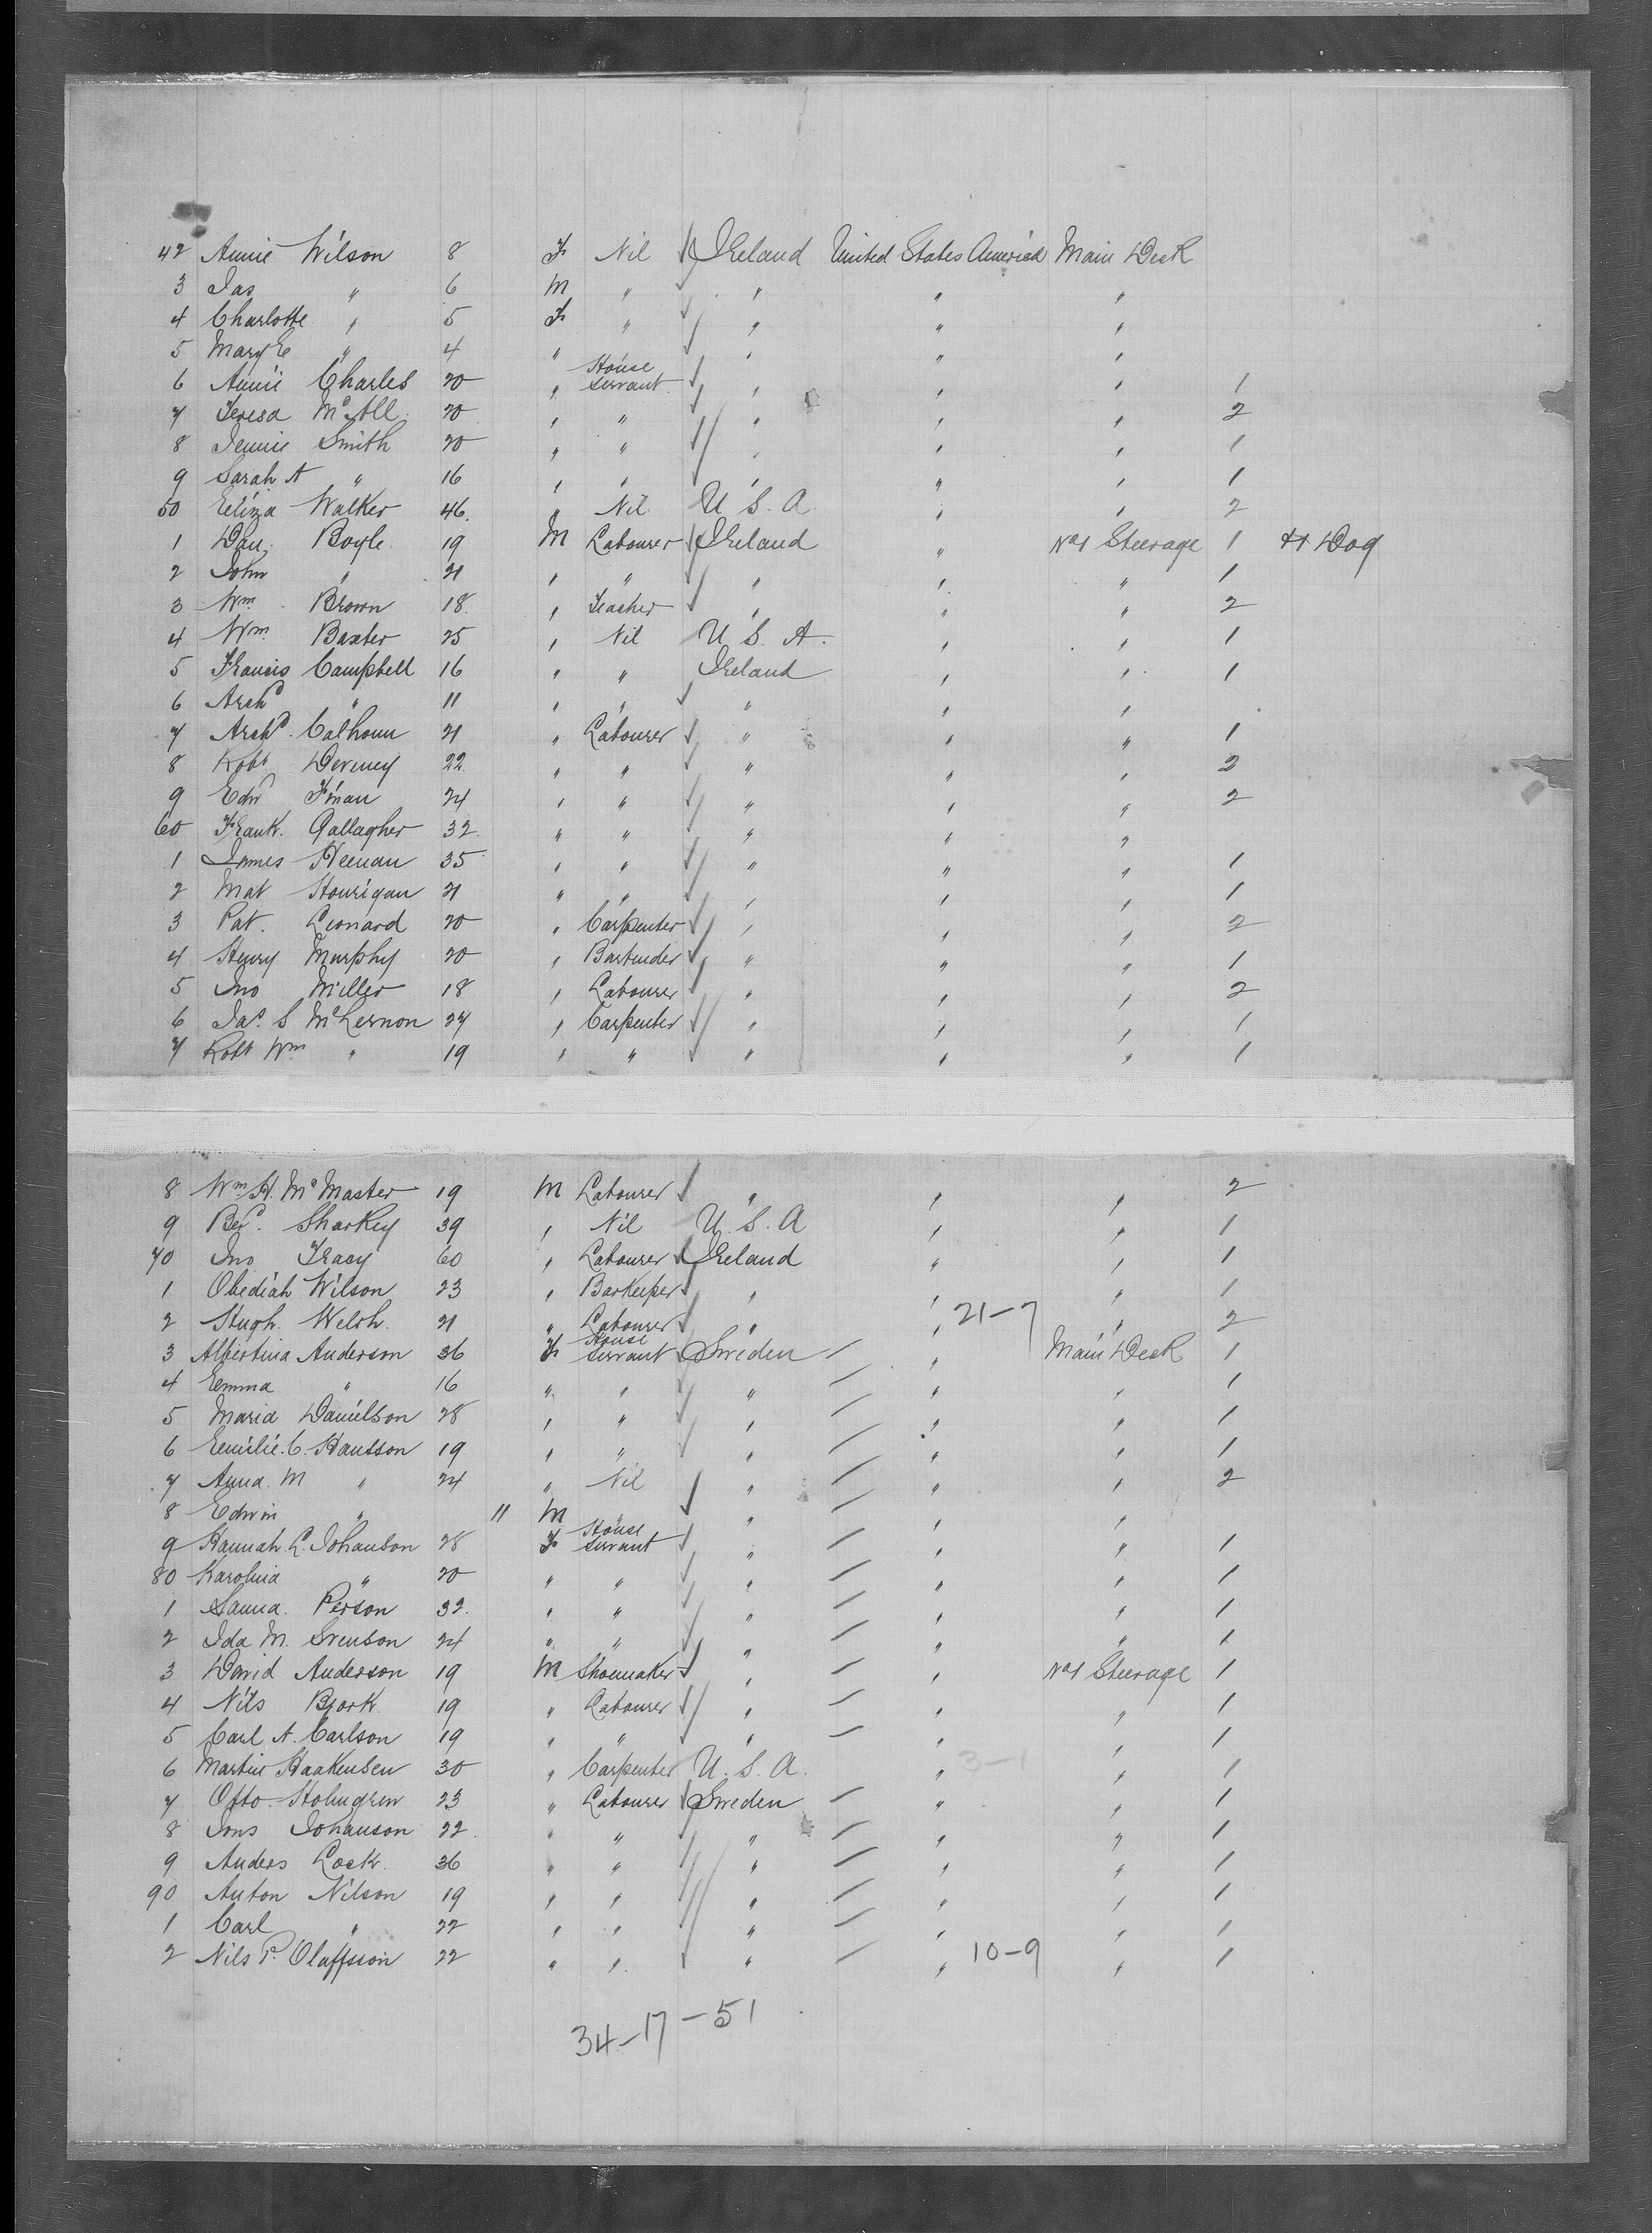 42 Annie Wilson 8 F Nil Ireland United States America Main Deck
3 Jas " 6 M " " " "
4 Charlotte " 5 F " " " "
5 Mary E " 4 " " " "
6 Annie Charles 20 " House Servant " " " 1
7 Teresa 20 " " " " " 2
8 Jennie Smith 20 " " " " " 1
9 Sarah A " 16 " " " " " 1
50 Eliza Walker 46. " Nil U. S. A " " 2
1 Dan. Boyle 19 M Labourer Ireland " No1 Steerage 1 Dog
2 John " 21 " " " " " 1
3 Wm Brown 18. " Teacher " " " 2
4 Wm Baxter 25 " Nil U. S. A. " " 1
5 Francis Campbell 16 " " Ireland " " 1
6 Archd " 11 " " " " "
7 Archd. Calhoun 21 " Labourer " " " 1
8 Robt Deveney 22 " " " " " 2
9 Edwd Finan 24 " " " " " 2
60 Frank. Gallagher 32. " " " " "
1 James Heenan 35 " " " " " 1
2 Mat Hourigan 21 " " " " " 1
3 Pat. Leonard 20 " Carpenter " " " 2
4 Henry Murphy 20 " Bartender " " " 1
5 Jno Miller 18 " Labourer " " " 2
6 Jas. S McLernon 27 " Carpenter " " " 1
7 Robt Wm " 19 " " " " " 1
8 Wm H. McMaster 19 M Labourer " " " 2
9 Sharkey 39 " Nil U. S. A " " 1
70 Jno Tracy 60 " Labourer Ireland " " 1
1 Obediah Wilson 23 " Barkeeper " " " 1
2 Hugh. Welsh. 21 " Labourer " " 21-7 " 2
3 Albertina Anderson 36 F House Servant Sweden " Main Deck 1
4 Emma " 16 " " " " " 1
5 Maria Danielson 28 " " " " " 1
6 Emilie. C. Hansson 19 " " " " " 1
7 Anna. M " 24 " Nil " " " 2
8 Edwin " 11 M " " " "
9 Hannah. L. Johanson 28 F House Servant " " " 1
80 Karolina " 20 " " " " " 1
1 Sanna. Person 32. " " " " " 1
2 Ida M. Svenson 24 " " " " " 1
3 David Anderson 19 M Shoemaker " " No1 Steerage 1
4 Nils Bjork 19 " Labourer " " " 1
5 Carl A. Carlson 19 " " " " " 1
6 Martin Haakensen 30 " Carpenter U. S. A. " 3-1 " 1
7 Otto Holmgren 23 " Labourer Sweden " " 1
8 Jons Johanson 22. " " " " " 1
9 Anders Lock 36 " " " " " 1
90 Anton Nilson 19 " " " " " 1
1 Carl " 22 " " " " " 1
2 Nils P. Olaffsson 22 " " " " 10-9 " 1
34-17-51